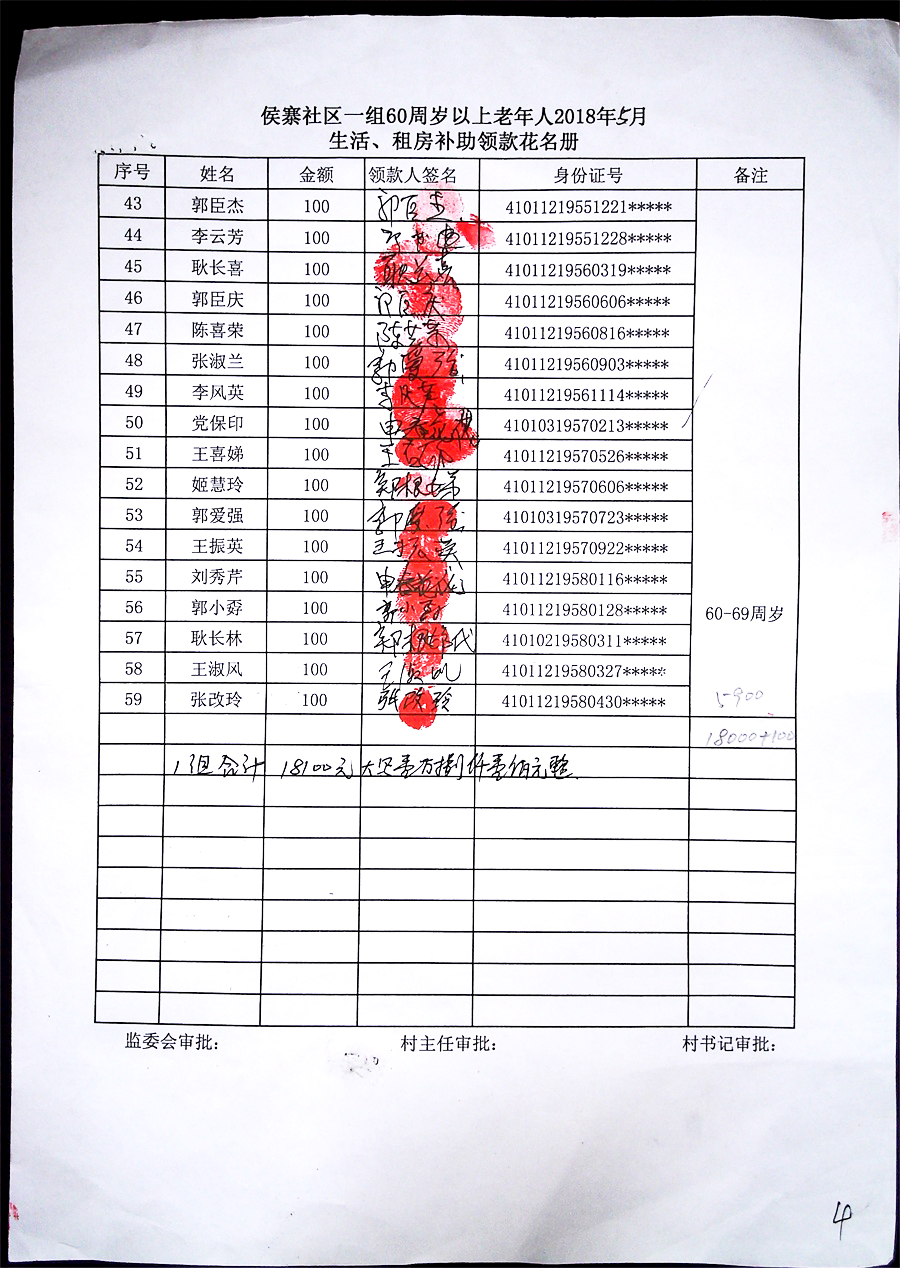 侯寨社区一组60周岁以上老年人2018年5月
生活、租房补助领款花名册
序号 姓名 金额 领款人签名 身份证号 备注
43 郭臣杰 100 郭臣杰 41011219551221*****
44 李云芳 100 41011219551228*****
45 耿长喜 100 耿长喜 41011219560319*****
46 郭臣庆 100 郭臣庆 41011219560606*****
47 陈喜荣 100 陈喜荣 41011219560816*****
48 张淑兰 100 郭爱强 41011219560903*****
49 李风英 100 李风英 41011219561114*****
50 党保印 100 申春花代 41010319570213*****
51 王喜娣 100 41011219570526*****
52 姬慧玲 100 41011219570606*****
53 郭爱强 100 郭爱强 41010319570723*****
54 王振英 100 王振英 41011219570922*****
55 刘秀芹 100 申春花代 41011219580116*****
56 郭小孬 100 郭小孬 41011219580128*****
60-69周岁
57 耿长林 100 41010219580311*****
58 王淑风 100 41011219580327*****
59 张改玲 100 张改玲 41011219580430***** 5900
18000+100
1组合计 18100元 大写壹万捌仟壹佰元整
监委会审批: 村主任审批: 村书记审批:
4